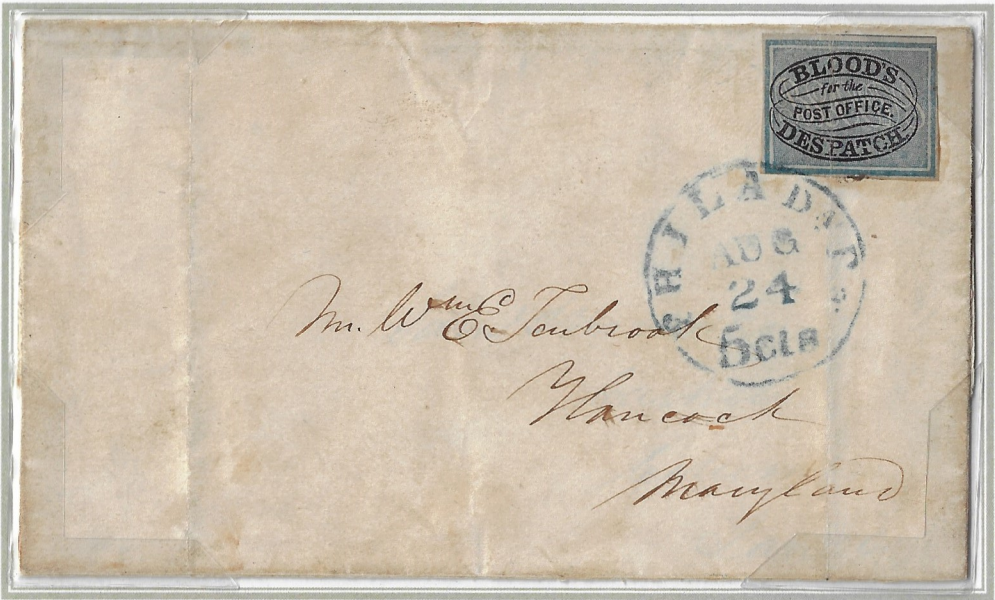 BLOOD'S
for the
POST OFFICE.
DESPATCH
PHILADA Pa
AUG
24
5cts
Mr. Wm E Tenbrook
Hancock
Maryland